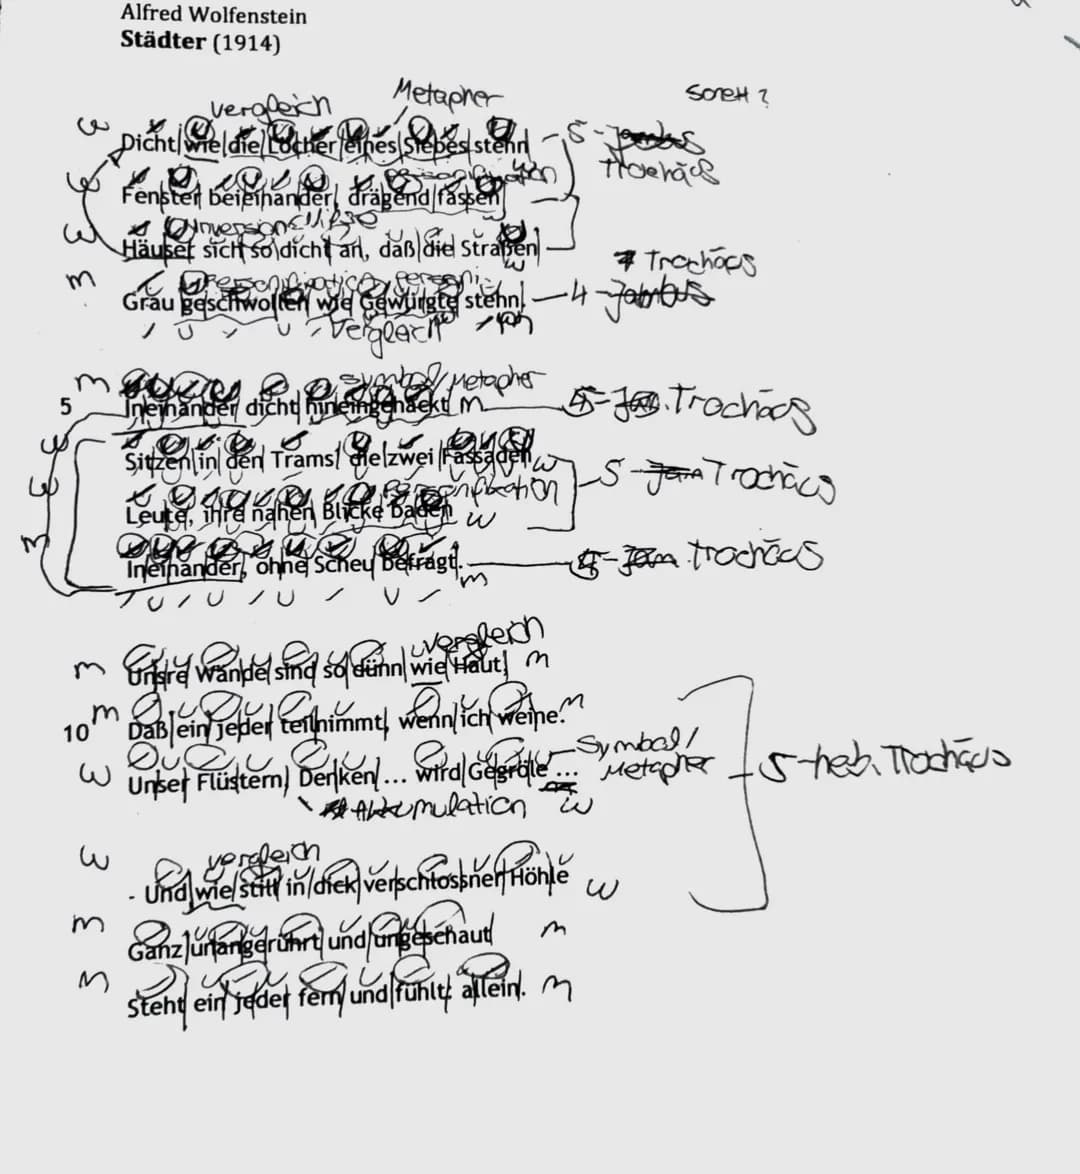 Alfred Wolfenstein
Städter (1914)
Vergleich Metapher SONEtt ?
w Dicht wie die Löcher eines Siebes stehn - 5 - Jambus
Trochäus
w Fenster beieinander, drägend fassen
w Inversion
Häuser sich so dicht an, daß die Straßen w
Trochäus
m Personification
Grau geschwollen wie Gewürgte stehn. 4 - Jambus
Vergleich
m Symbol/Metapher
5 Ineinander dicht hineingehackt m 5 - Trochäus
w Sitzen in den Trams die zwei Fassaden w 5 - Jam Trochäus
w Personification
Leute, ihre nahen Blicke baden w
m Ineinander, ohne Scheu befragt. m - Jam. Trochäus
Vergleich
m Unsre Wände sind so dünn wie Haut, m
10 m Daß ein jeder teilnimmt, wenn ich weine. m
w Unser Flüstern, Denken ... wird Gegröle ... Symbol/
Metapher 5-heb. Trochäus
Akkumulation w
w Vergleich
- Und wie still in dick verschlossner Höhle w
m Ganz unangerührt und ungeschaut m
m Steht ein jeder fern und fühlt: allein. m